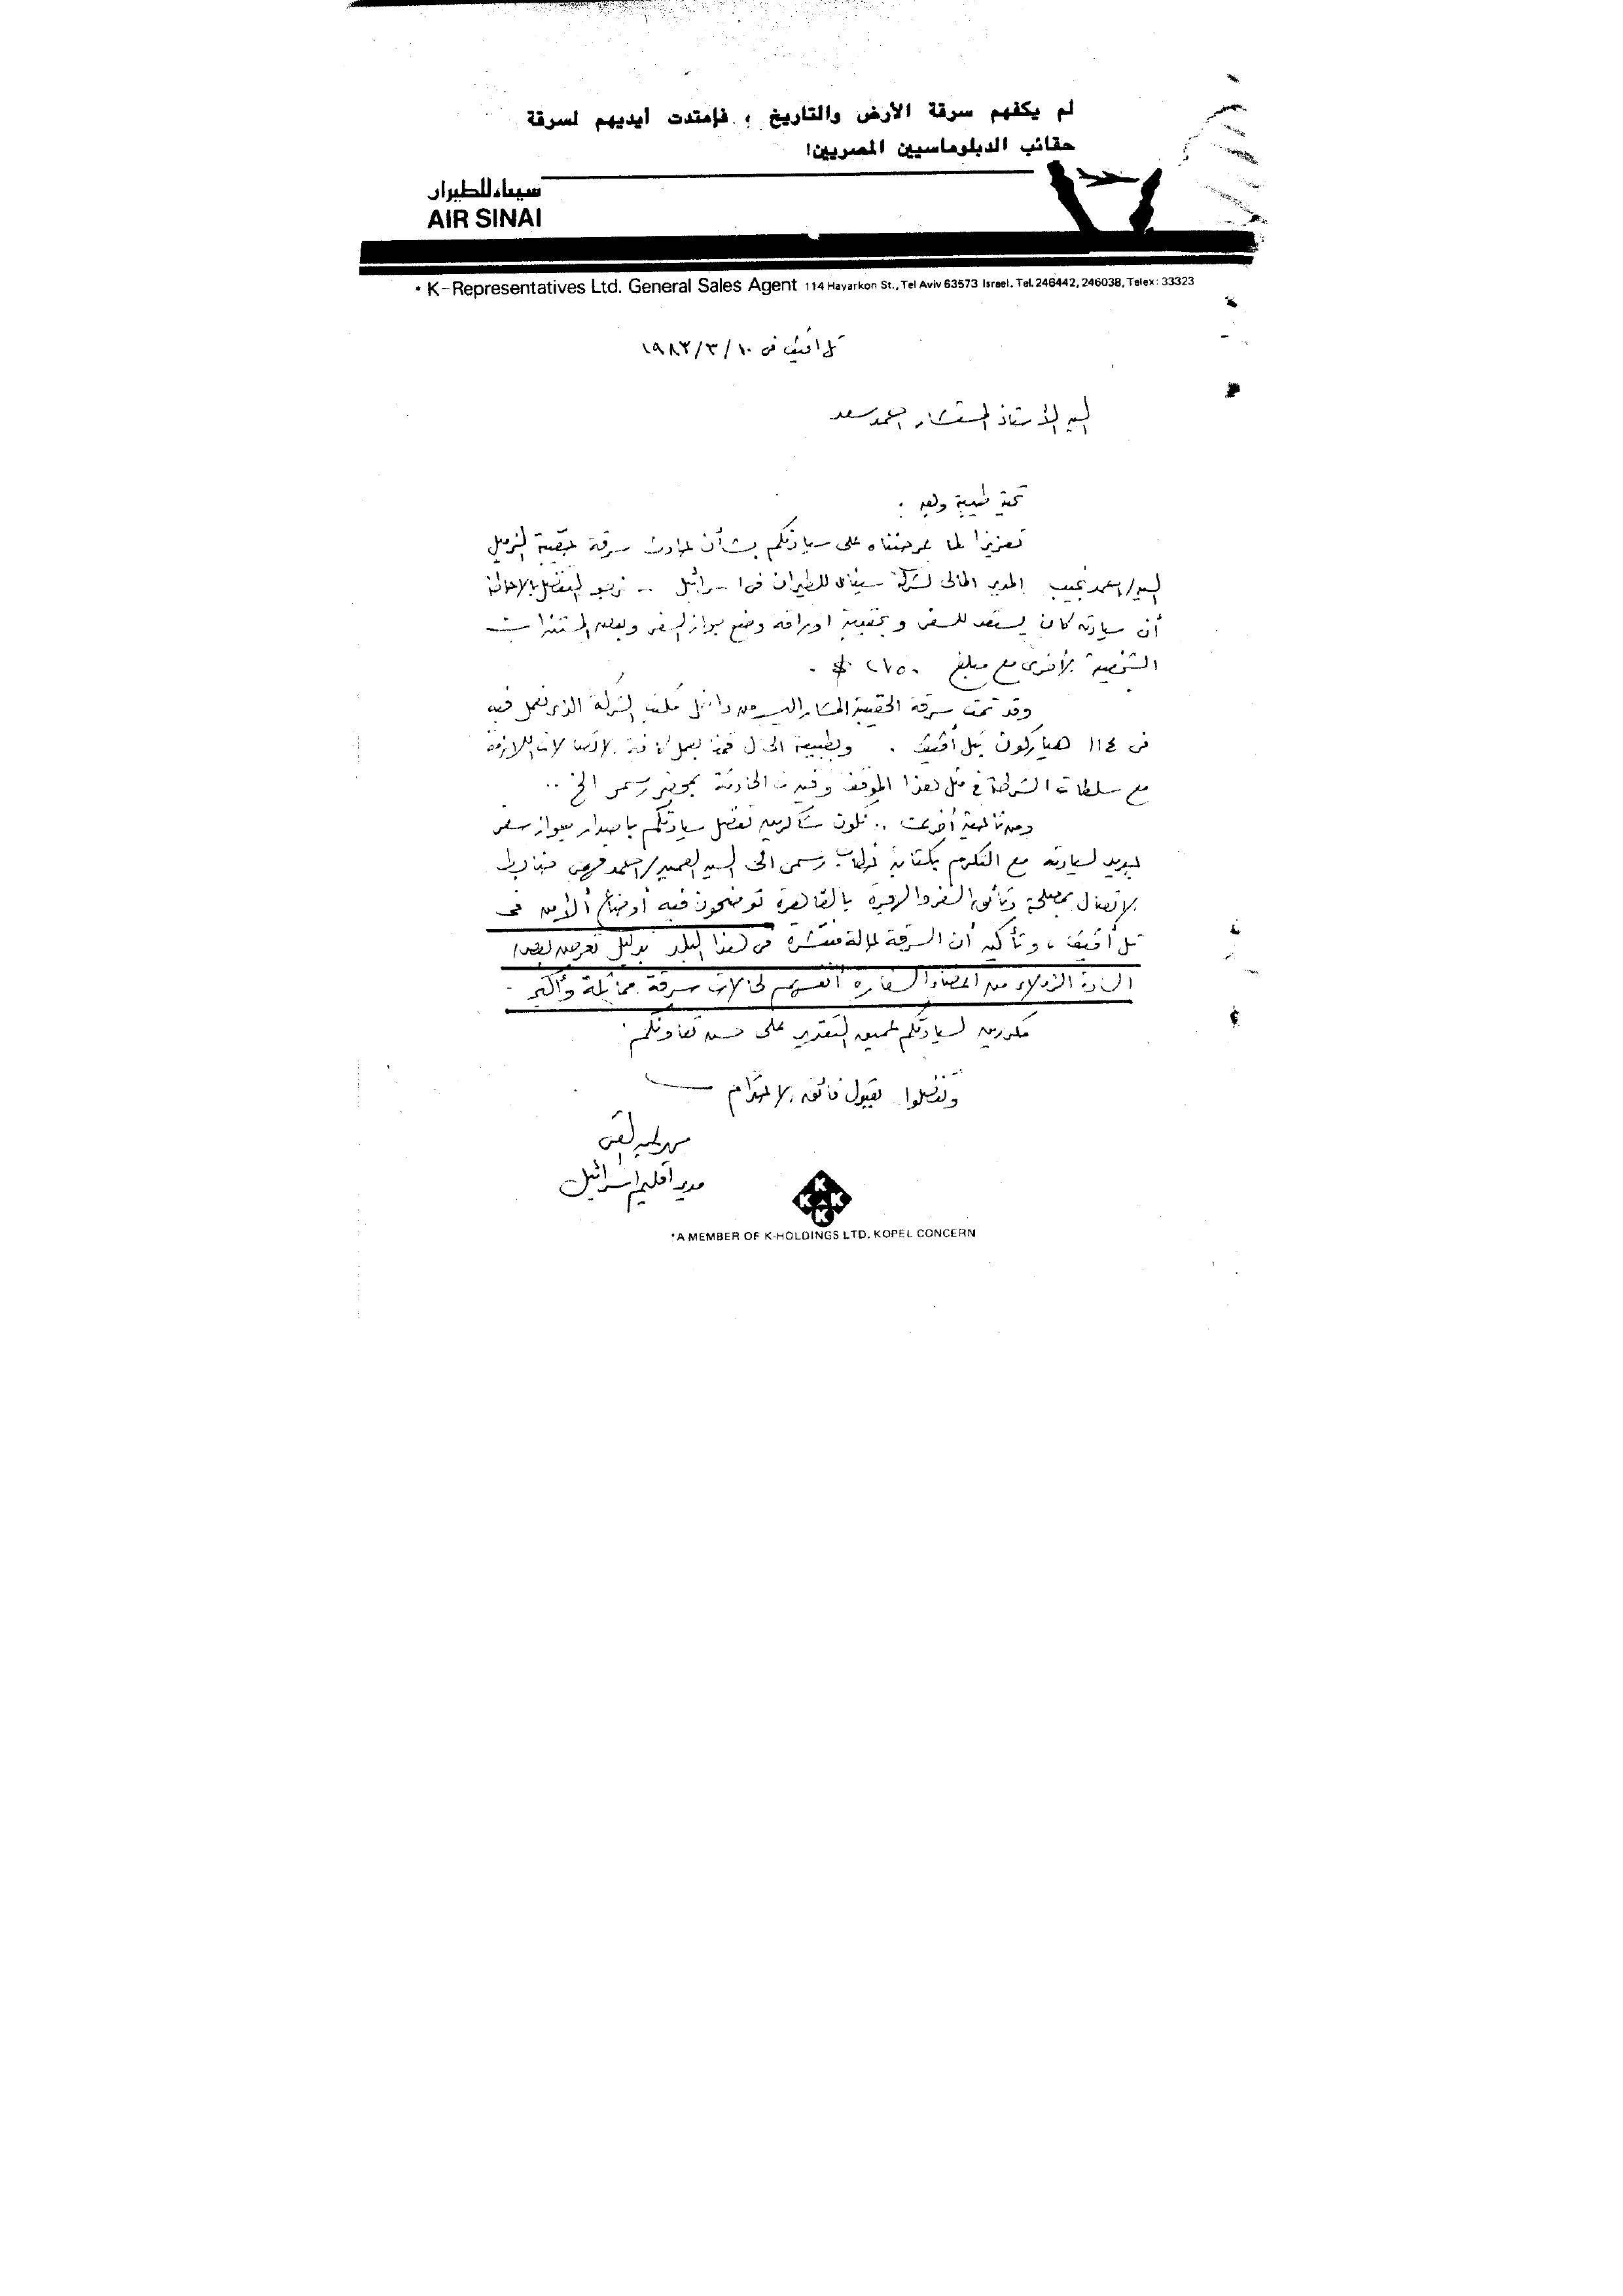 لم يكفهم سرقة الأرض والتاريخ ، فإمتدت أيديهم لسرقة
حقائب الدبلوماسيين المصريين!
سيناء للطيران
AIR SINAI
• K-Representatives Ltd. General Sales Agent 114 Hayarkon St., Tel Aviv 63573 Israel. Tel. 246442, 246038, Telex: 33323
تل أفيف فى ١٩٨٣/٣/١٠
السيد الأستاذ المستشار أحمد سعد
تحية طيبة وبعد .
تعزيزا لما عرضناه على سيادتكم بشأن حادث سرقة حقيبة الزميل
السيد/ أحمد نجيب المدير المالى لشركة سيناء للطيران فى اسرائيل .. نرجو التفضل بالإحاطة
أن سيادته كان يستعد للسفر وبحقيبة أوراقه وضع جواز السفر وبعض المستندات
الشخصية الأخرى مع مبلغ ٢٧٥٠ $ .
وقد تمت سرقة الحقيبة المشار اليها من داخل مكتب الشركة الذى نعمل فيه
فى ١١٤ هياركون بتل أفيف . وبطبيعة الحال قمنا بعمل كافة الإتصالات اللازمة
مع سلطات الشرطة فى مثل هذا الموقف وقيدت الحادثة بمحضر رسمى الخ ..
ومن ناحية أخرى .. نكون شاكرين تفضل سيادتكم باصدار جواز سفر
جديد لسيادته مع التكرم بكتابة خطاب رسمى الى السيد العميد/ أحمد فهمى ضابط
الإتصال بمصلحة وثائق السفر والهجرة بالقاهرة توضحون فيه أوضاع الأمن فى
تل أفيف ، وتأكيد أن السرقة حالة منتشرة فى هذا البلد بدليل تعرض بعض
السادة الزملاء من أعضاء السفارة أنفسهم لحالات سرقة مماثلة وأكبر .
مكررين لسيادتكم عميق التقدير على حسن تعاونكم .
وتفضلوا بقبول فائق الإحترام
مدير اقليم اسرائيل
K
K K
K
*A MEMBER OF K-HOLDINGS LTD. KOPEL CONCERN